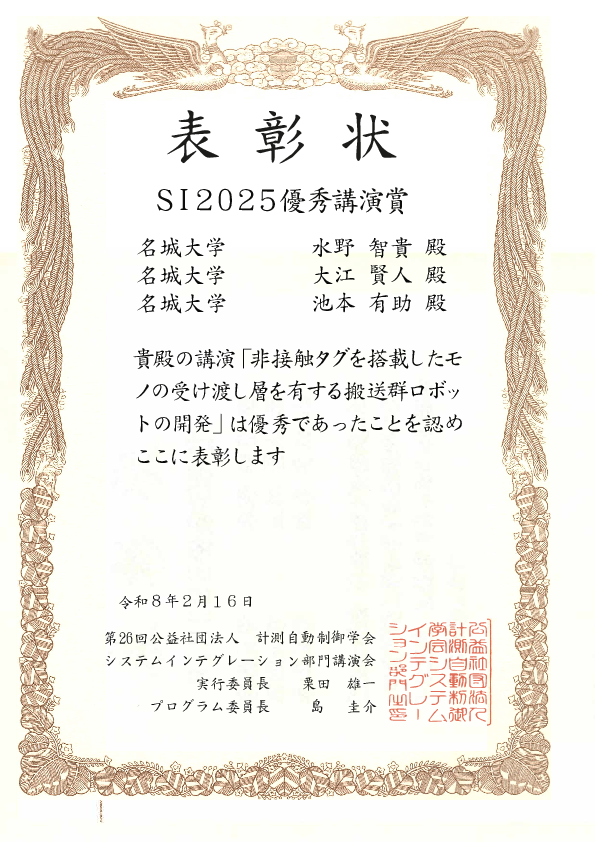 表彰状
SI2025優秀講演賞
名城大学 水野 智貴 殿
名城大学 大江 賢人 殿
名城大学 池本 有助 殿
貴殿の講演「非接触タグを搭載したモ
ノの受け渡し層を有する搬送群ロボッ
トの開発」は優秀であったことを認め
ここに表彰します
令和8年2月16日
第26回公益社団法人 計測自動制御学会
システムインテグレーション部門講演会
実行委員長 栗田 雄一
プログラム委員長 島 圭介
公益社団法人
計測自動制御
学会システム
インテグレー
ション部門之印